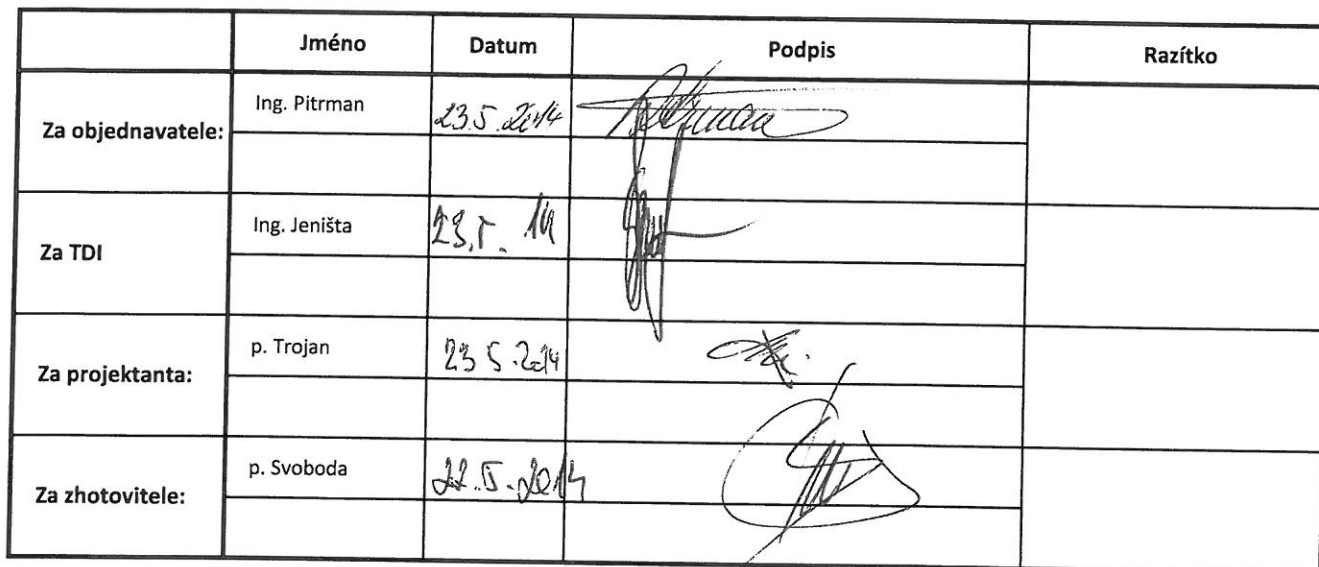 Jméno Datum Podpis Razítko
Za objednavatele: Ing. Pitrman 23.5.2014
Za TDI Ing. Jeništa 23.5. 14
Za projektanta: p. Trojan 23 5.2014
Za zhotovitele: p. Svoboda 22.5.2014